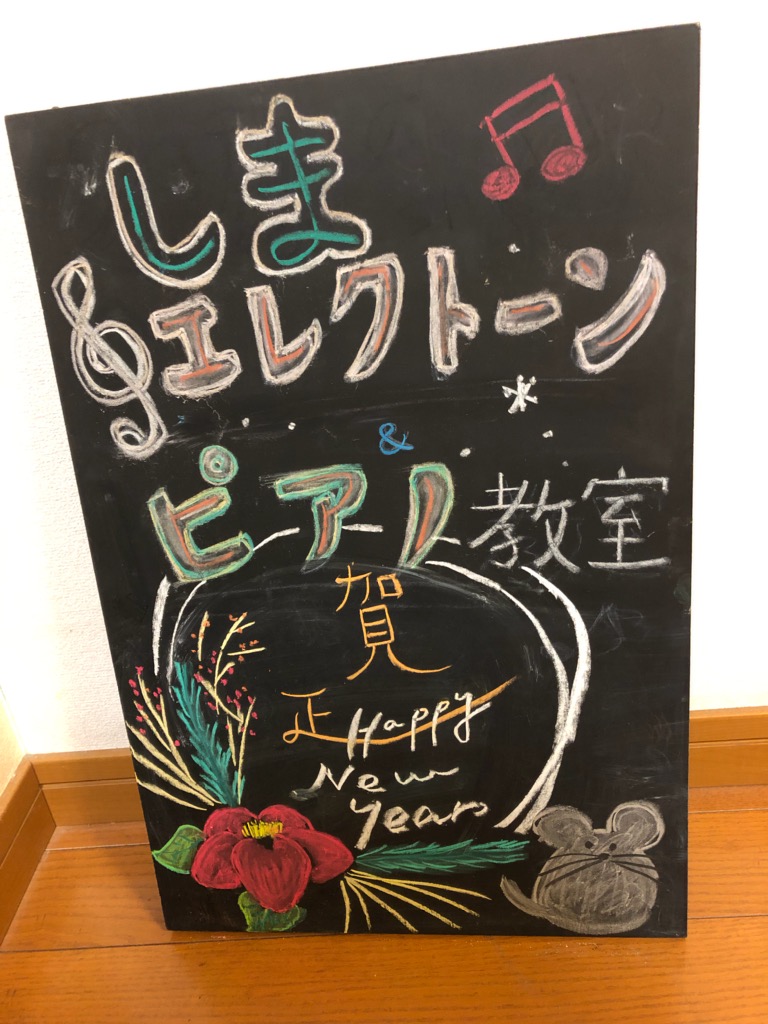 しま
エレクトーン
&
ピアノ教室
賀
正 Happy
New
Year